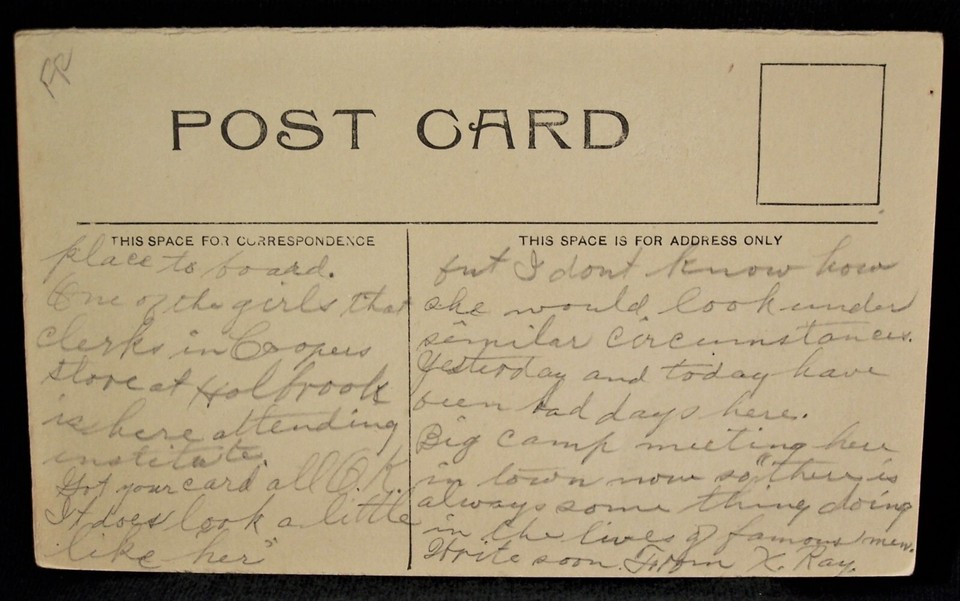 POST CARD
THIS SPACE FOR CORRESPONDENCE
place to board.
One of the girls that
clerks in Coopers
store at Holbrook
is here attending
institute.
Got your card all O.K.
It does look a little
like "her"
THIS SPACE IS FOR ADDRESS ONLY
but I dont know how
she would look under
similar circumstances.
Yesterday and today have
been bad days here.
Big camp meeting here
in town now so "there is
always some thing doing
in the lives of famous men.
Write soon. From X. Ray.